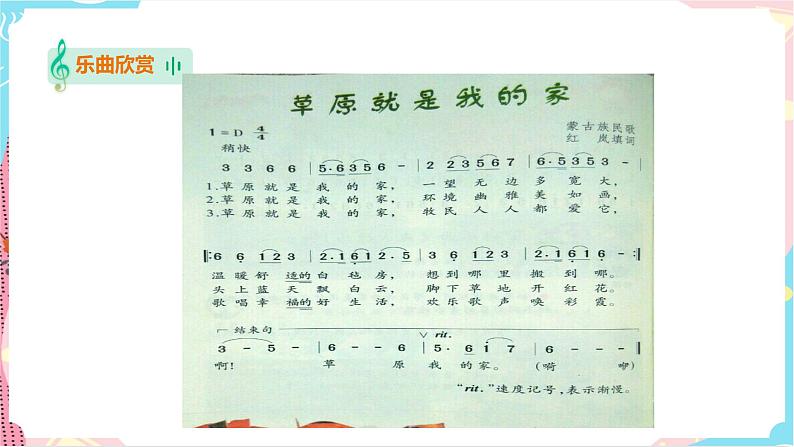 乐曲欣赏
草原就是我的家
1=D 4/4
蒙古族民歌
稍快
红岚填词
3 3 6 6 | 5·6 3 5 6 - | 2 2 3 5 6 7 | 6·5 3 5 3 - |
1.草原就是我的家， 一望无边多宽大，
2.草原就是我的家， 环境幽雅美如画，
3.草原就是我的家， 牧民人人都爱它，
‖: 6 6 1 2 3 | 2·1 6 1 2·5 | 3 6 1 2 3 | 2·1 6 1 6 - :‖
温暖舒适的白毡房， 想到哪里搬到哪。
头上蓝天飘白云， 脚下草地开红花。
歌唱幸福的好生活， 欢乐歌声唤彩霞。
结束句
rit.
3 - 5 - | 6 - - 6 | 5· 6 1 7 | 6 - - - | 6 - 6 - ‖
啊！ 草原我的家。（嗬咿）
“rit.”速度记号，表示渐慢。